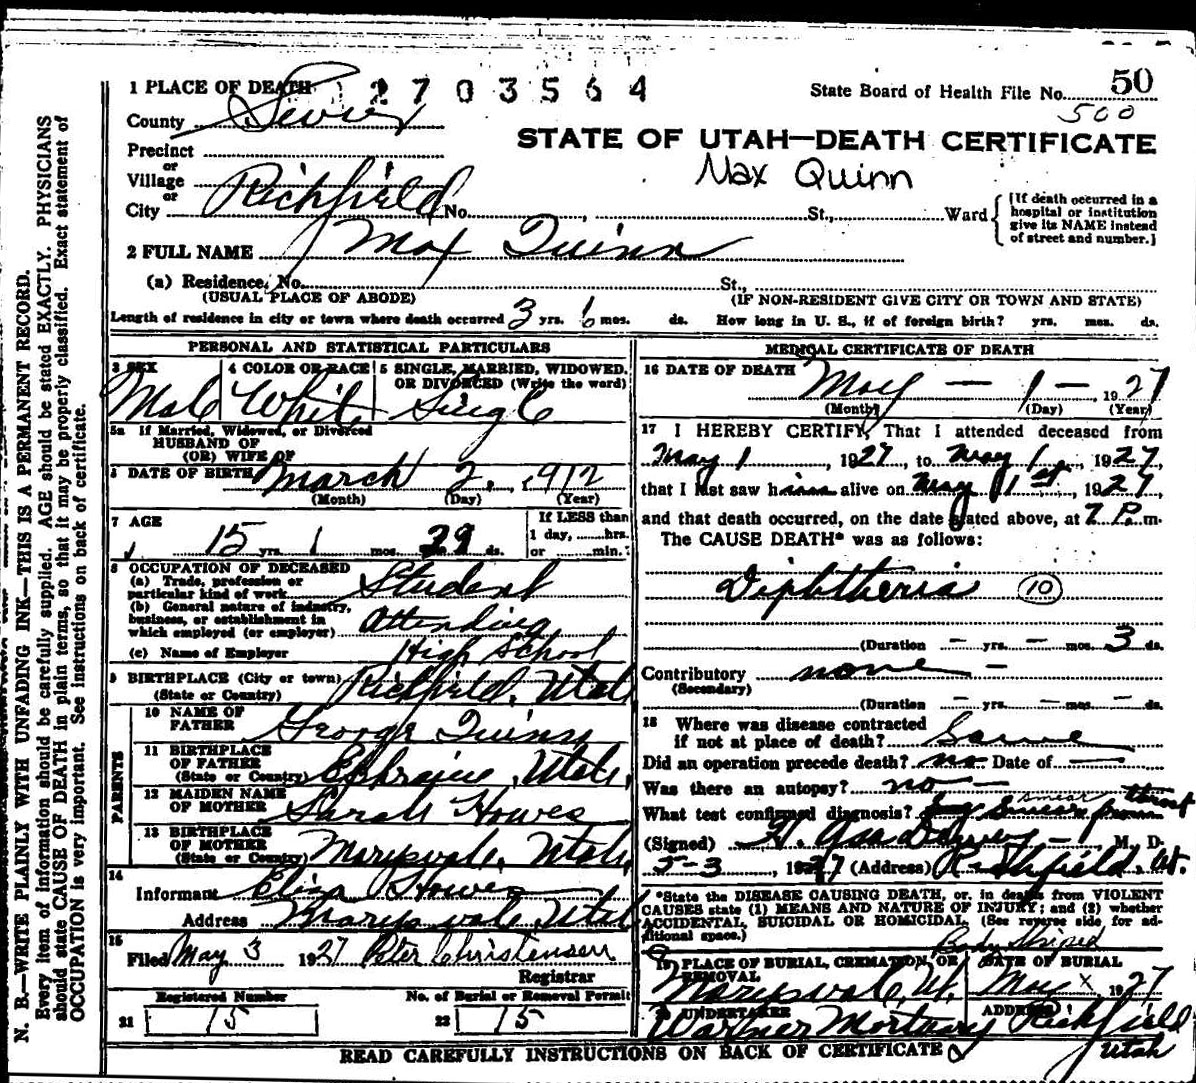 N. B.—WRITE PLAINLY WITH UNFADING INK—THIS IS A PERMANENT RECORD.
Every item of information should be carefully supplied. AGE should be stated EXACTLY. PHYSICIANS
should state CAUSE OF DEATH in plain terms, so that it may be properly classified. Exact statement of
OCCUPATION is very important. See instructions on back of certificate.
1 PLACE OF DEATH 2703564
State Board of Health File No. 50
500
County Sevier
STATE OF UTAH—DEATH CERTIFICATE
Precinct
or
Max Quinn
Village
or
City Richfield No. , St., Ward
[If death occurred in a
hospital or institution
give its NAME instead
of street and number.]
2 FULL NAME Max Quinn
(a) Residence, No. St.,
(USUAL PLACE OF ABODE) (IF NON-RESIDENT GIVE CITY OR TOWN AND STATE)
Length of residence in city or town where death occurred 3 yrs. 6 mos. ds. How long in U. S., if of foreign birth? yrs. mos. ds.
PERSONAL AND STATISTICAL PARTICULARS
3 SEX
Male
4 COLOR OR RACE
White
5 SINGLE, MARRIED, WIDOWED.
OR DIVORCED (Write the word)
Single
5a If Married, Widowed, or Divorced
HUSBAND OF
(OR) WIFE OF
6 DATE OF BIRTH March 2, 1912
(Month) (Day) (Year)
7 AGE
15 yrs. 1 mos. 29 ds.
If LESS than
1 day, hrs.
or min.
8 OCCUPATION OF DECEASED
(a) Trade, profession or
particular kind of work Student
(b) General nature of industry,
business, or establishment in
which employed (or employer) Attending
(c) Name of Employer High School
9 BIRTHPLACE (City or town)
(State or Country) Richfield, Utah
PARENTS
10 NAME OF
FATHER George Quinn
11 BIRTHPLACE
OF FATHER
(State or Country) Ephraim, Utah.
12 MAIDEN NAME
OF MOTHER Sarah Howes
13 BIRTHPLACE
OF MOTHER
(State or Country) Marysvale, Utah
14
Informant Eliza Howes
Address Marysvale, Utah
15
Filed May 3 1927 Peter Christensen
Registrar
Registered Number
21 15
No. of Burial or Removal Permit
22 15
MEDICAL CERTIFICATE OF DEATH
16 DATE OF DEATH May — 1 — , 1927
(Month) (Day) (Year)
17 I HEREBY CERTIFY, That I attended deceased from
May 1, 1927, to May 1, 1927,
that I last saw him alive on May 1st, 1927
and that death occurred, on the date stated above, at 7 P. m.
The CAUSE DEATH* was as follows:
Diphtheria 10
(Duration — yrs. — mos. 3 ds.
Contributory none —
(Secondary)
(Duration — yrs. — mos. — ds.
18 Where was disease contracted
if not at place of death? Same
Did an operation precede death? no Date of —
Was there an autopsy? no —
smear throat
What test confirmed diagnosis? by Smear from
(Signed) Dewey — M. D.
5-3, 1927 (Address) Richfield, Ut.
*State the DISEASE CAUSING DEATH, or, in deaths from VIOLENT
CAUSES state (1) MEANS AND NATURE OF INJURY; and (2) whether
ACCIDENTAL, SUICIDAL OR HOMICIDAL. (See reverse side for ad-
ditional space.)
Body Shipped
19 PLACE OF BURIAL, CREMATION, OR
REMOVAL
Marysvale, Ut.
DATE OF BURIAL
May x 1927
20 UNDERTAKER
Warner Mortuary
ADDRESS
Richfield
Utah
READ CAREFULLY INSTRUCTIONS ON BACK OF CERTIFICATE